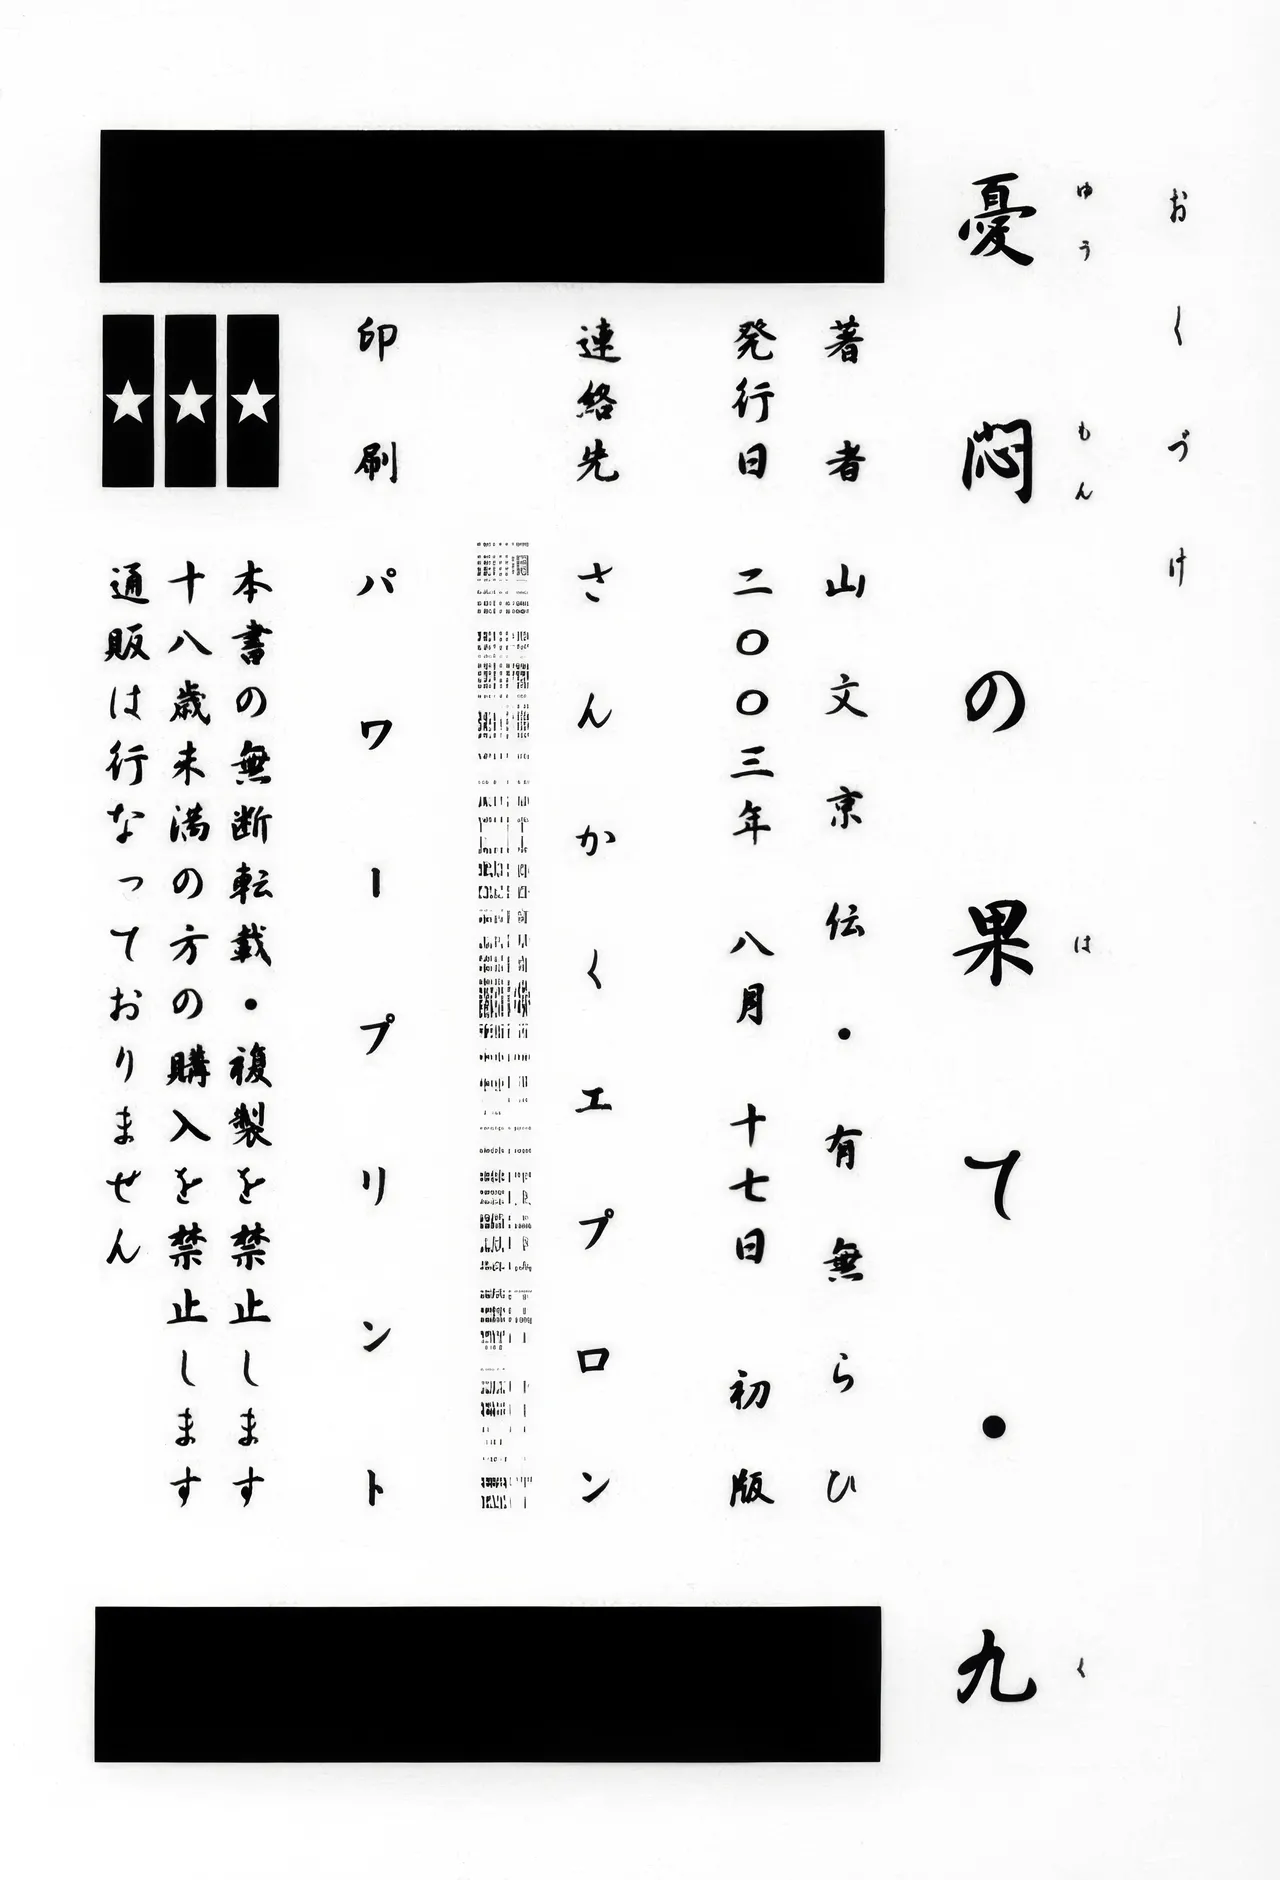 おくづけ
憂悶の果て・九
ゆうもん は く
著者 山文京伝・有無らひ
発行日 二〇〇三年 八月 十七日 初版
連絡先 さんかくエプロン
印刷 パワープリント
★ 本書の無断転載・複製を禁止します
★ 十八歳未満の方の購入を禁止します
★ 通販は行なっておりません